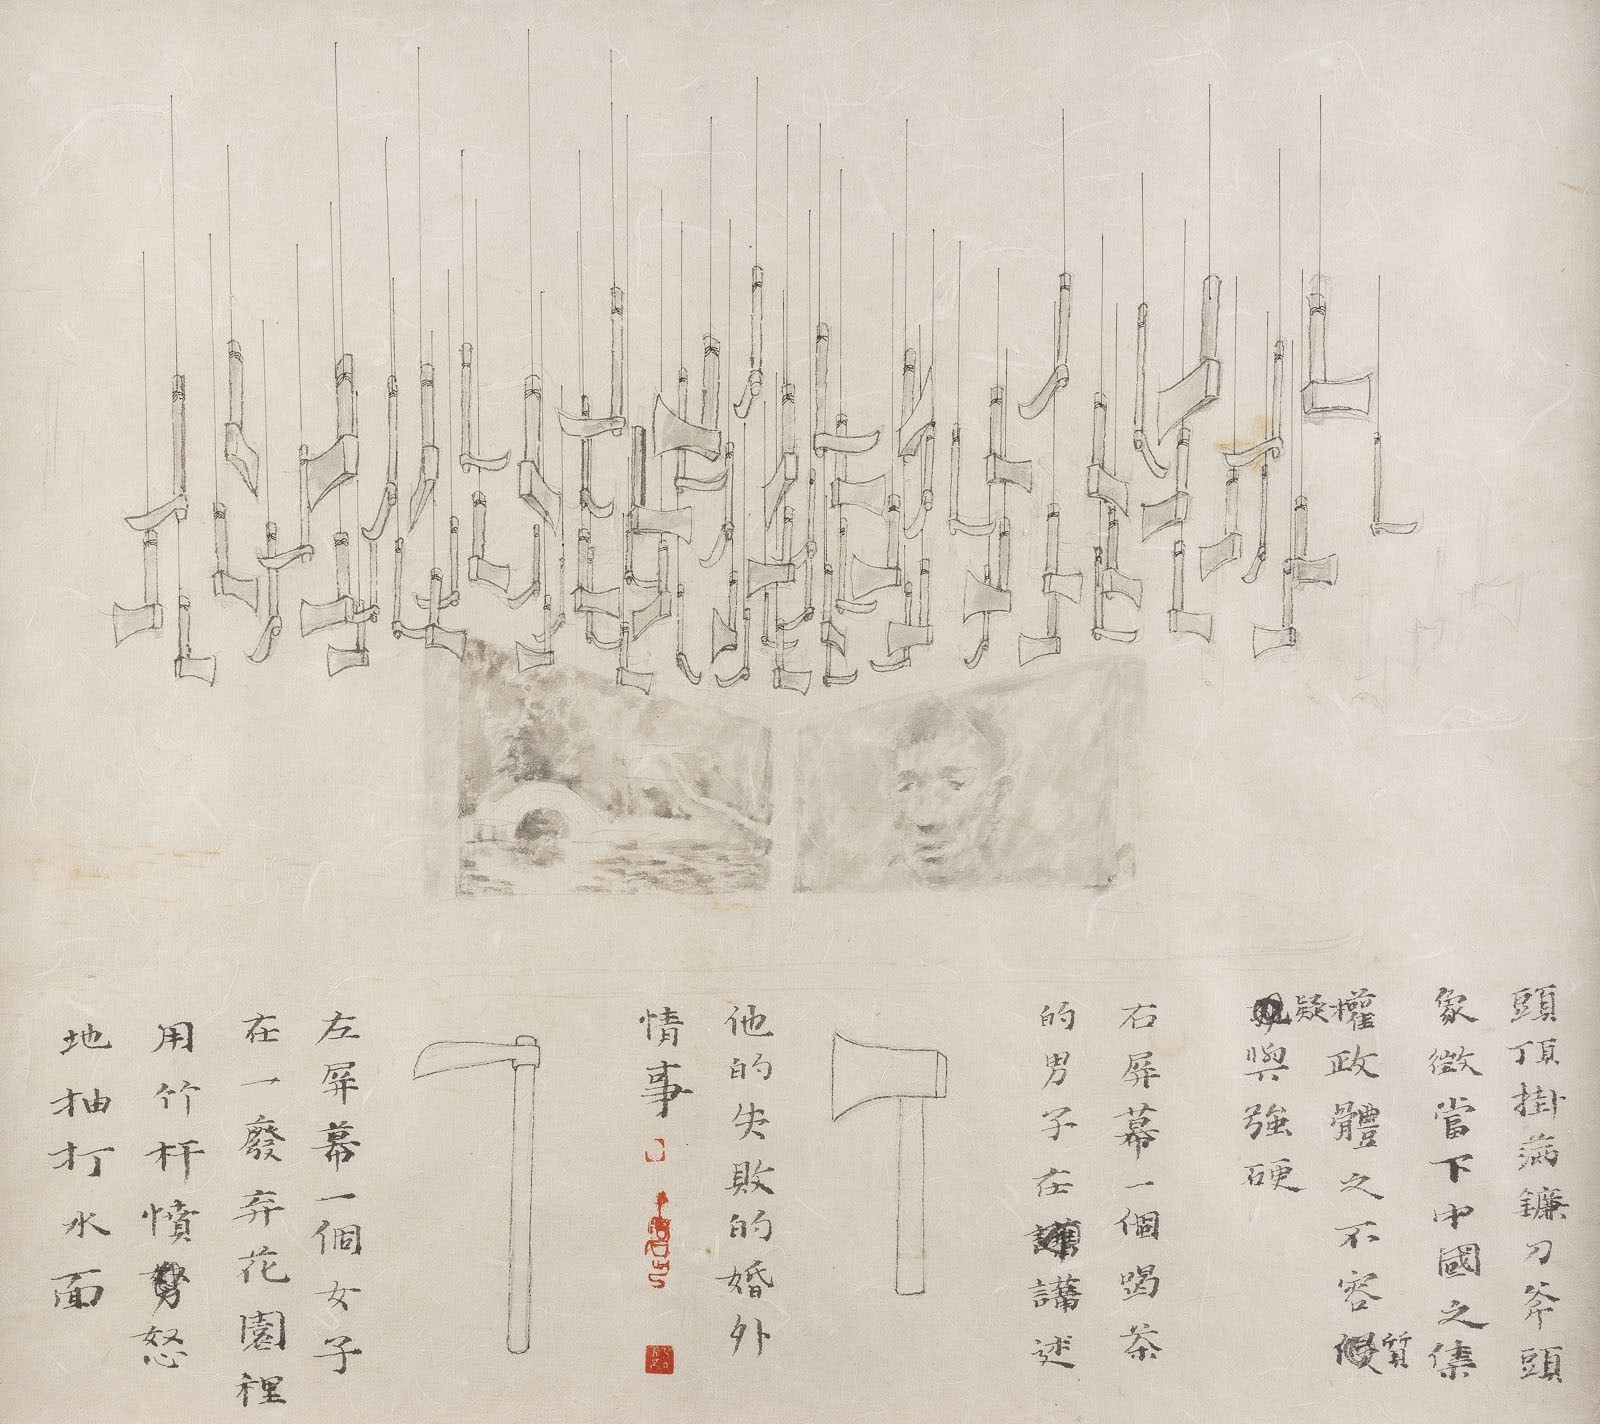 頭頂掛满鐮刀斧頭
象徵當下中國之集
權政體之不容質
疑與強硬
右屏幕一個喝茶
的男子在講述
他的失敗的婚外
情事
左屏幕一個女子
在一廢弃花園裡
用竹杆憤怒
地抽打水面